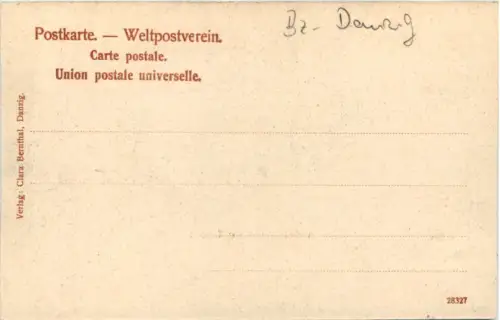 Postkarte. — Weltpostverein.
Carte postale.
Union postale universelle.
Bz- Danzig
Verlag: Clara Bernthal, Danzig.
28327